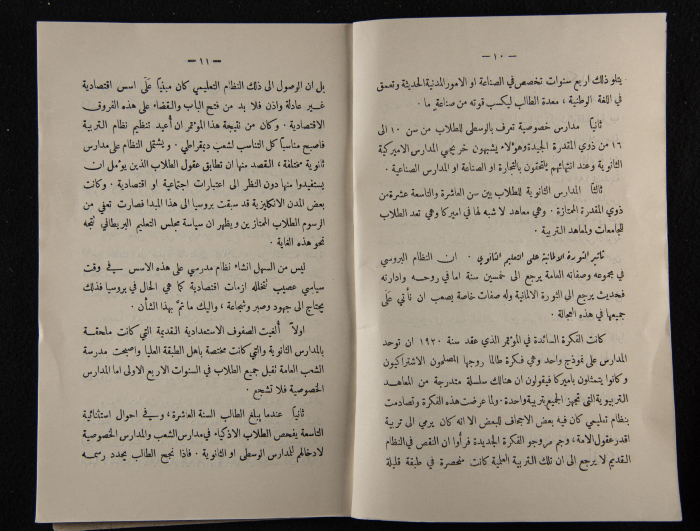 — ١٠ —
يتلو ذلك اربع سنوات تخصص في الصناعة او الامور المدنية الحديثة وتعمق
في اللغة الوطنية ، معدة الطالب ليكسب قوته من صناعة ما .
ثانياً مدارس خصوصية تعرف بالوسطى للطلاب من سن ١٠ الى
١٦ من ذوي المقدرة الجيدة وهؤلاء يشبهون خريجي المدارس الاميركية
الثانوية وعند انتهائهم يلتحقون بالتجارة او الصناعة او المدارس الصناعية .
ثالثاً المدارس الثانوية للطلاب بين سن العاشرة والتاسعة عشرة من
ذوي المقدرة الممتازة . وهي معاهد لا شبه لها في اميركا وهي تعد الطلاب
للجامعات ولمعاهد التربية .
تأثير الثورة الالمانية على التعليم الثانوي . ان النظام البروسي
في مجموعه وصفاته العامة يرجع الى خمسين سنة اما في روحه وادارته
فحديث يرجع الى الثورة الالمانية وله صفات خاصة يصعب ان نأتي على
جميعها في هذه العجالة .
كانت الفكرة السائدة في المؤتمر الذي عقد سنة ١٩٢٠ ان توحد
المدارس على نموذج واحد وهي فكرة طالما روجها المصلحون الاشتراكيون
وكانوا يتمثلون باميركا فيقولون ان هنالك سلسلة متدرجة من المعاهد
التربيوية التي تجهز الجميع بتربية واحدة . ولما عرضت هذه الفكرة وتصادمت
بنظام تعليمي كان فيه بعض الاجحاف للبعض الا انه كان يرمي الى تربية
اقدر عقول الامة ، وجم مروجو الفكرة الجديدة فرأوا ان النقص في النظام
القديم لا يرجع الى ان تلك التربية العلية كانت منحصرة في طبقة قليلة
— ١١ —
بل ان الوصول الى ذلك النظام التعليمي كان مبنياً على اسس اقتصادية
غير عادلة واذن فلا بد من فتح الباب والقضاء على هذه الفروق
الاقتصادية . وكان من نتيجة هذا المؤتمر ان أعيد تنظيم نظام التربية
فاصبح مناسباً كل التناسب لشعب ديمقراطي . ويشتمل النظام على مدارس
ثانوية مختلفة ، القصد منها ان تطابق عقول الطلاب الذين يؤمل ان
يستفيدوا منها دون النظر الى اعتبارات اجتماعية او اقتصادية . وكانت
بعض المدن الانكليزية قد سبقت بروسيا الى هذا المبدا فصارت تعفي من
الرسوم الطلاب الممتازين ويظهر ان سياسة مجلس التعليم البريطاني تتجه
نحو هذه الغاية .
ليس من السهل انشاء نظام مدرسي على هذه الاسس في وقت
سياسي عصيب تتخلله ازمات اقتصادية كما هي الحال في بروسيا فذلك
يحتاج الى جهود وصبر وشجاعة ، واليك ما تم بهذا الشأن .
اولاً ألغيت الصفوف الاستعدادية القديمة التي كانت ملحقة
بالمدارس الثانوية والتي كانت مختصة باهل الطبقة العليا واصبحت مدرسة
الشعب العامة تقبل جميع الطلاب في السنوات الاربع الاولى اما المدارس
الخصوصية فلا تشجع .
ثانياً عندما يبلغ الطالب السنة العاشرة ، وفي احوال استثنائية
التاسعة يفحص الطلاب الاذكياء في مدارس الشعب والمدارس الخصوصية
لادخالهم المدارس الوسطى او الثانوية . فاذا نجح الطالب يجدد رسمه